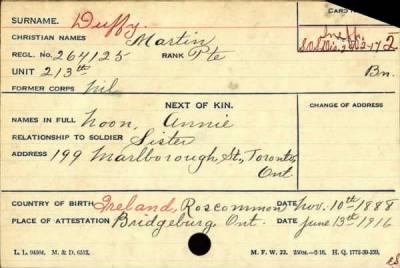 SURNAME. Duffy.
CHRISTIAN NAMES Martin
REGL. NO. 264125 RANK Pte
UNIT 213th Bn.
FORMER CORPS nil
NEXT OF KIN. CHANGE OF ADDRESS
NAMES IN FULL Noon, Annie
RELATIONSHIP TO SOLDIER Sister
ADDRESS 199 Marlborough St, Toronto,
Ont
COUNTRY OF BIRTH Ireland, Roscommon DATE Nov. 10th 1888
PLACE OF ATTESTATION Bridgeburg, Ont. DATE June 13th 1916
L. L. 94504. M. & D. 6512. M. F. W. 22. H. Q. 1772-39-339.